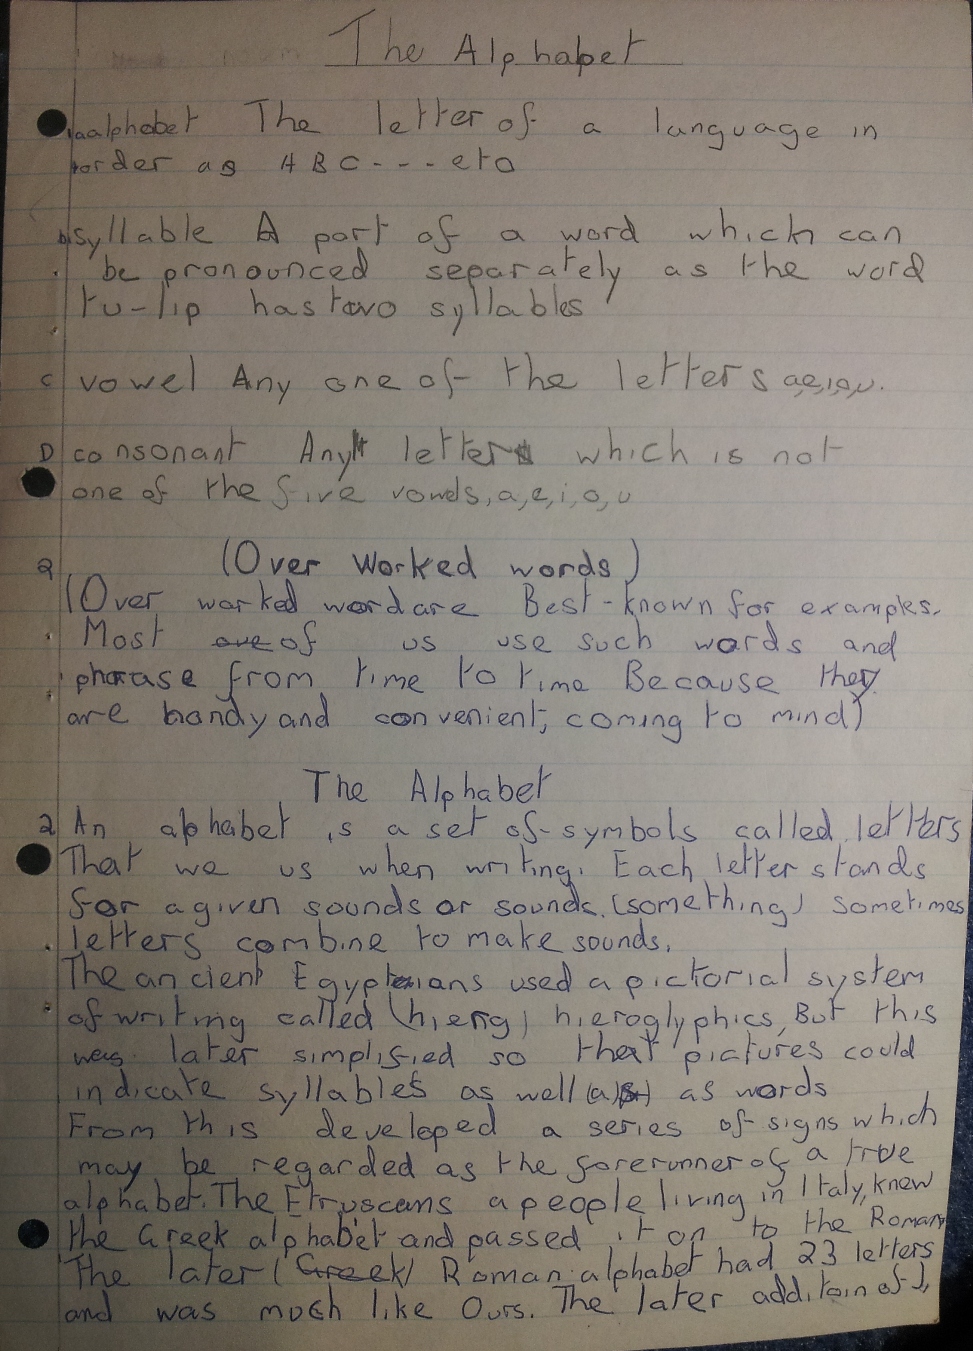 The Alphabet
a alphabet The letter of a language in
order as A B C - - - - etc
b syllable A part of a word which can
be pronounced separately as the word
tu-lip has two syllables
c vowel Any one of the letters a,e,i,o,u.
D consonant Any letter which is not
one of the five vowels, a, e, i, o, u
2 (Over Worked words)
(Over worked word are Best-known for examples.
Most one of us use such words and
phrase from time to time Because they
are handy and convenient, coming to mind)
The Alphabet
2 An alphabet is a set of symbols called letters
That we us when writing. Each letter stands
for a given sounds or sounds. (something) sometimes
letters combine to make sounds.
The ancient Egyptians used a pictorial system
of writing called (hierg) hieroglyphics, But this
was later simplified so that pictures could
indicate syllables as well (as) as words
From this developed a series of signs which
may be regarded as the forerunner of a true
alphabet. The Etruscans a people living in Italy, knew
the Greek alphabet and passed it on to the Romans
The later (Greek) Roman alphabet had 23 letters
and was much like Ours. The later additoin of J,